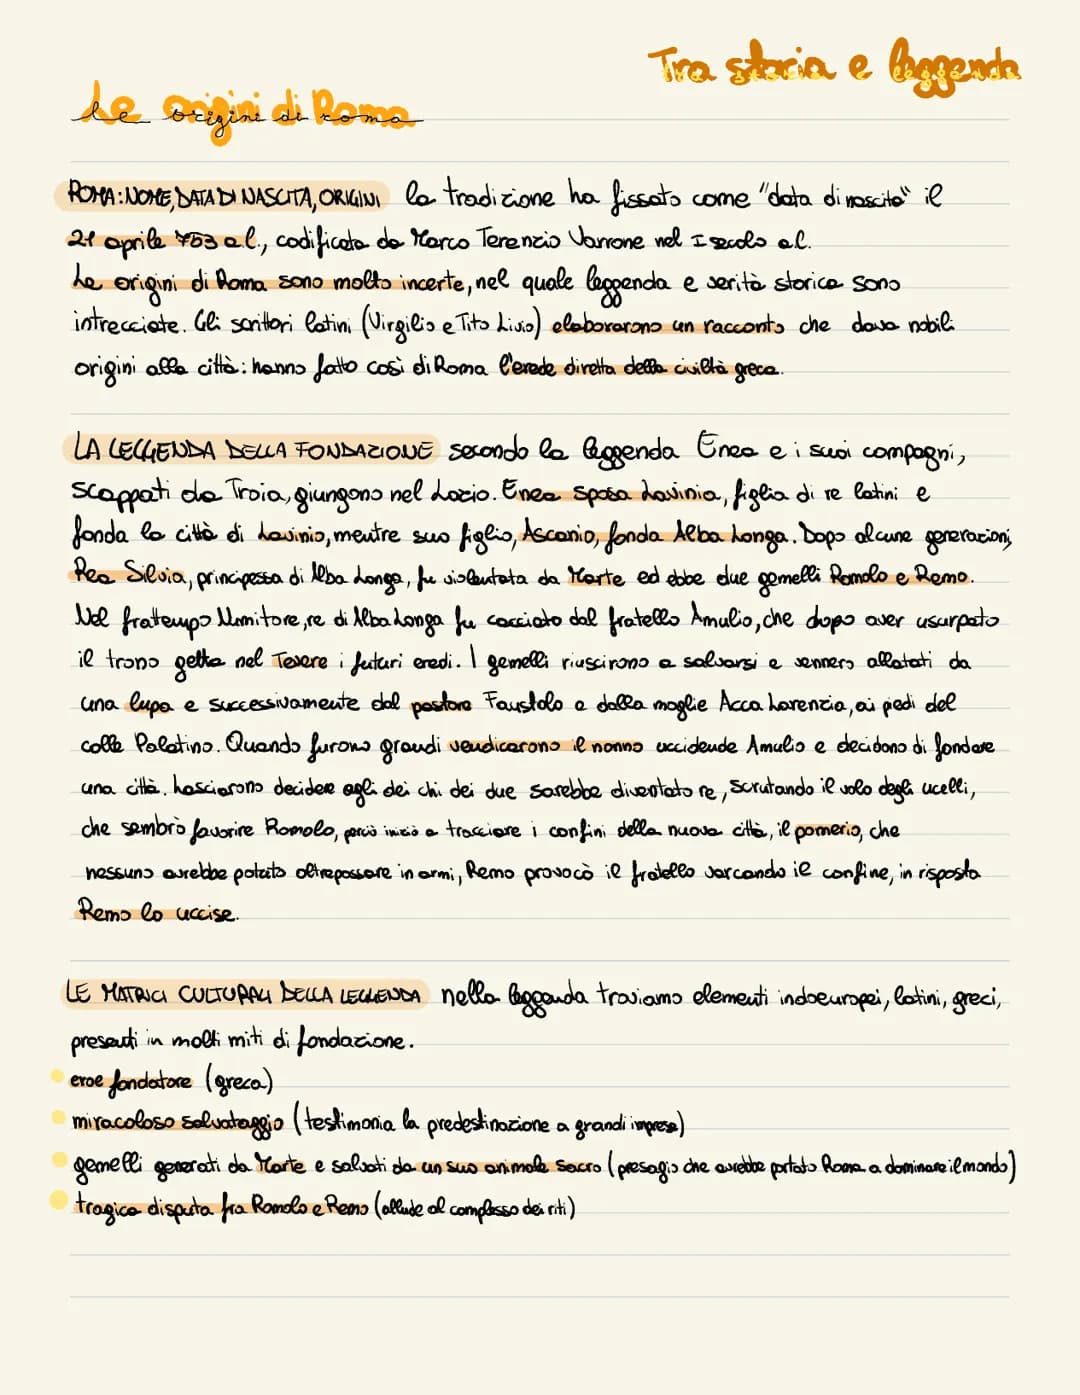 Tra storia e leggenda
Le origini di Roma
ROMA: NOME, DATA DI NASCITA, ORIGINI la tradizione ha fissato come "data di nascita" il
21 aprile 753 a.C., codificata da Marco Terenzio Varrone nel I secolo a.C.
Le origini di Roma sono molto incerte, nel quale leggenda e verità storica sono
intrecciate. Gli scrittori latini (Virgilio e Tito Livio) elaborarono un racconto che dava nobili
origini alla città: hanno fatto così di Roma l'erede diretta della civiltà greca.
LA LEGGENDA DELLA FONDAZIONE secondo la leggenda Enea e i suoi compagni,
scappati da Troia, giungono nel Lazio. Enea sposa Lavinia, figlia di re latini e
fonda la città di Lavinio, mentre suo figlio, Ascanio, fonda Alba Longa. Dopo alcune generazioni,
Rea Silvia, principessa di Alba Longa, fu violentata da Marte ed ebbe due gemelli Romolo e Remo.
Nel frattempo Numitore, re di Alba Longa fu cacciato dal fratello Amulio, che dopo aver usurpato
il trono getta nel Tevere i futuri eredi. I gemelli riuscirono a salvarsi e vennero allattati da
una lupa e successivamente dal pastore Faustolo e dalla moglie Acca Larenzia, ai piedi del
colle Palatino. Quando furono grandi vendicarono il nonno uccidendo Amulio e decidono di fondare
una città. Lasciarono decidere agli dei chi dei due sarebbe diventato re, scrutando il volo degli ucelli,
che sembrò favorire Romolo, perciò iniziò a tracciare i confini della nuova città, il pomerio, che
nessuno avrebbe potuto oltrepassare in armi, Remo provocò il fratello varcando il confine, in risposta
Remo lo uccise.
LE MATRICI CULTURALI DELLA LEGGENDA nella leggenda troviamo elementi indoeuropei, latini, greci,
presenti in molti miti di fondazione.
eroe fondatore (greca)
miracoloso salvataggio (testimonia la predestinazione a grandi imprese)
gemelli generati da Marte e salvati da un suo animale sacro (presagio che avrebbe portato Roma a dominare il mondo)
tragica disputa fra Romolo e Remo (allude al complesso dei riti)